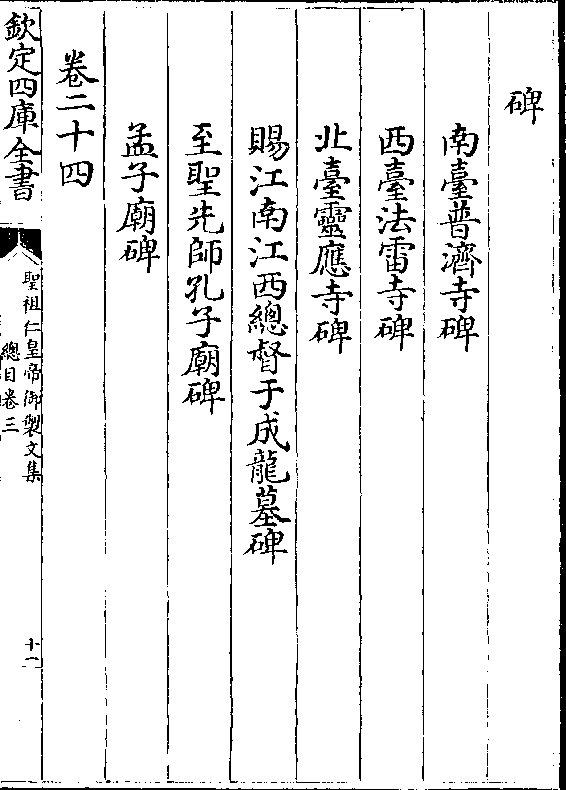 碑
南臺普濟寺碑
西臺法雷寺碑
北臺靈應寺碑
賜江南江西總督于成龍墓碑
至聖先師孔子廟碑
孟子廟碑
卷二十四
欽定四庫全書
聖祖仁皇帝御製文集
總目卷三
十一